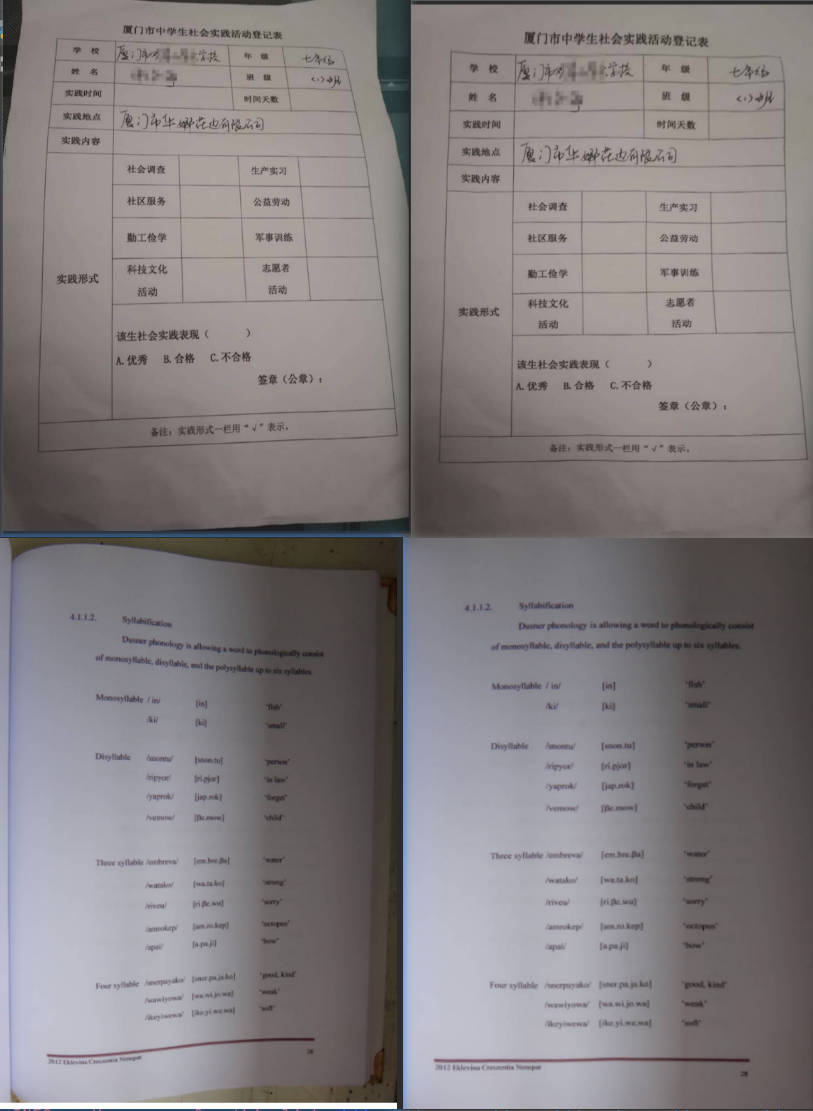 厦门市中学生社会实践活动登记表
学 校 厦门市 学校 年 级 七年级
姓 名 班 级
实践时间 时间天数
实践地点 厦门市华娜 有限公司
实践内容
社会调查 生产实习
社区服务 公益劳动
勤工俭学 军事训练
实践形式
科技文化 志愿者
活动 活动
该生社会实践表现（ ）
A.优秀 B.合格 C.不合格
签章（公章）：
备注：实践形式一栏用“√”表示。
厦门市中学生社会实践活动登记表
学 校 厦门市 学校 年 级 七年级
姓 名 班 级
实践时间 时间天数
实践地点 厦门市华娜 有限公司
实践内容
社会调查 生产实习
社区服务 公益劳动
勤工俭学 军事训练
实践形式
科技文化 志愿者
活动 活动
该生社会实践表现（ ）
A.优秀 B.合格 C.不合格
签章（公章）：
备注：实践形式一栏用“√”表示。
4.1.1.2. Syllabification
Dusner phonology is allowing a word to phonologically consist
of monosyllable, disyllable, and the polysyllable up to six syllables.
Monosyllable / in/ [in] ‘fish’
/ki/ [ki] ‘small’
Disyllable /snontu/ [snon.tu] ‘person’
/ripyor/ [ri.pjor] ‘in law’
/yaprok/ [jap.rok] ‘forget’
/vemow/ [βe.mow] ‘child’
Three syllable /embreva/ [em.bre.βa] ‘water’
/watako/ [wa.ta.ko] ‘strong’
/riveu/ [ri.βe.wu] ‘sorry’
/amrokep/ [am.ro.kep] ‘octopus’
/apai/ [a.pa.ji] ‘bow’
Four syllable /snerpayako/ [sner.pa.ja.ko] ‘good, kind’
/wawiyowa/ [wa.wi.jo.wa] ‘weak’
/ikeyiwewa/ [ike.yi.we.wa] ‘soft’
28
2012 Eklevina
4.1.1.2. Syllabification
Dusner phonology is allowing a word to phonologically consist
of monosyllable, disyllable, and the polysyllable up to six syllables.
Monosyllable / in/ [in] ‘fish’
/ki/ [ki] ‘small’
Disyllable /snontu/ [snon.tu] ‘person’
/ripyor/ [ri.pjor] ‘in law’
/yaprok/ [jap.rok] ‘forget’
/vemow/ [βe.mow] ‘child’
Three syllable /embreva/ [em.bre.βa] ‘water’
/watako/ [wa.ta.ko] ‘strong’
/riveu/ [ri.βe.wu] ‘sorry’
/amrokep/ [am.ro.kep] ‘octopus’
/apai/ [a.pa.ji] ‘bow’
Four syllable /snerpayako/ [sner.pa.ja.ko] ‘good, kind’
/wawiyowa/ [wa.wi.jo.wa] ‘weak’
/ikeyiwewa/ [ike.yi.we.wa] ‘soft’
2012 Eklevina
28